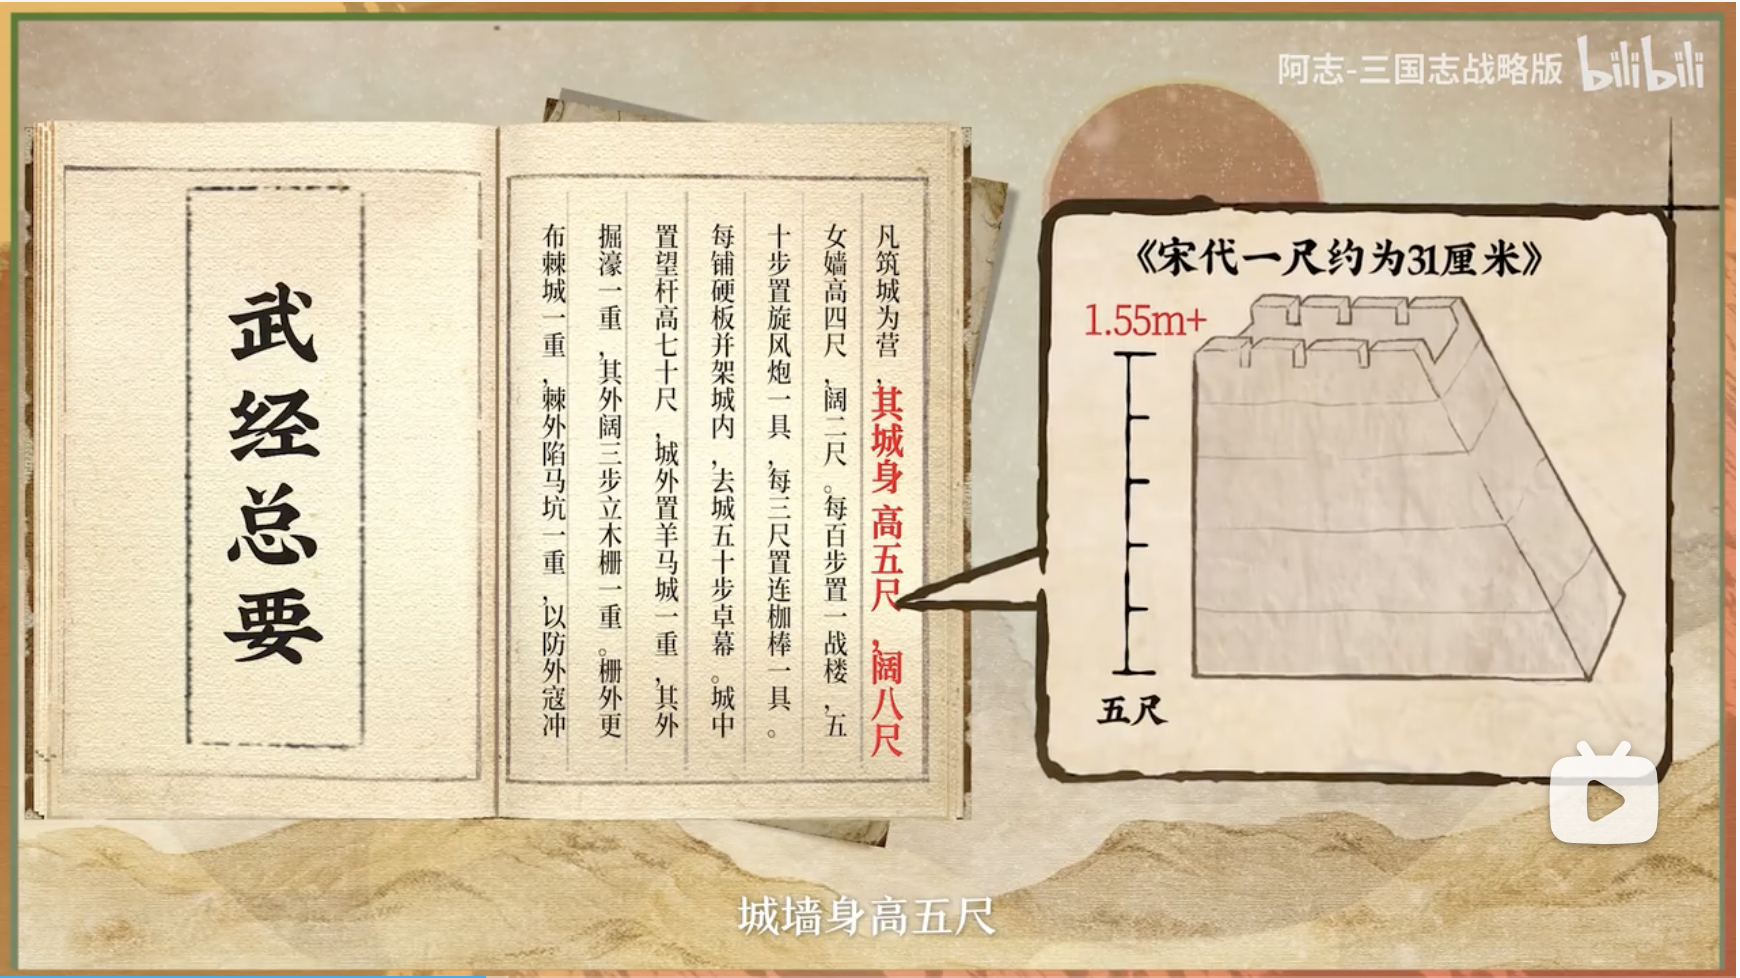 阿志-三国志战略版 bilibili
武经总要
凡筑城为营，其城身高五尺，阔八尺
女嬙高四尺，阔二尺。每百步置一战楼，五
十步置旋风炮一具，每三尺置连枷棒一具。
每铺硬板并架城内，去城五十步卓幕。城中
置望杆高七十尺，城外置羊马城一重，其外
掘濠一重，其外阔三步立木栅一重。栅外更
布棘城一重，棘外陷马坑一重，以防外寇冲
《宋代一尺约为31厘米》
1.55m+
五尺
城墙身高五尺